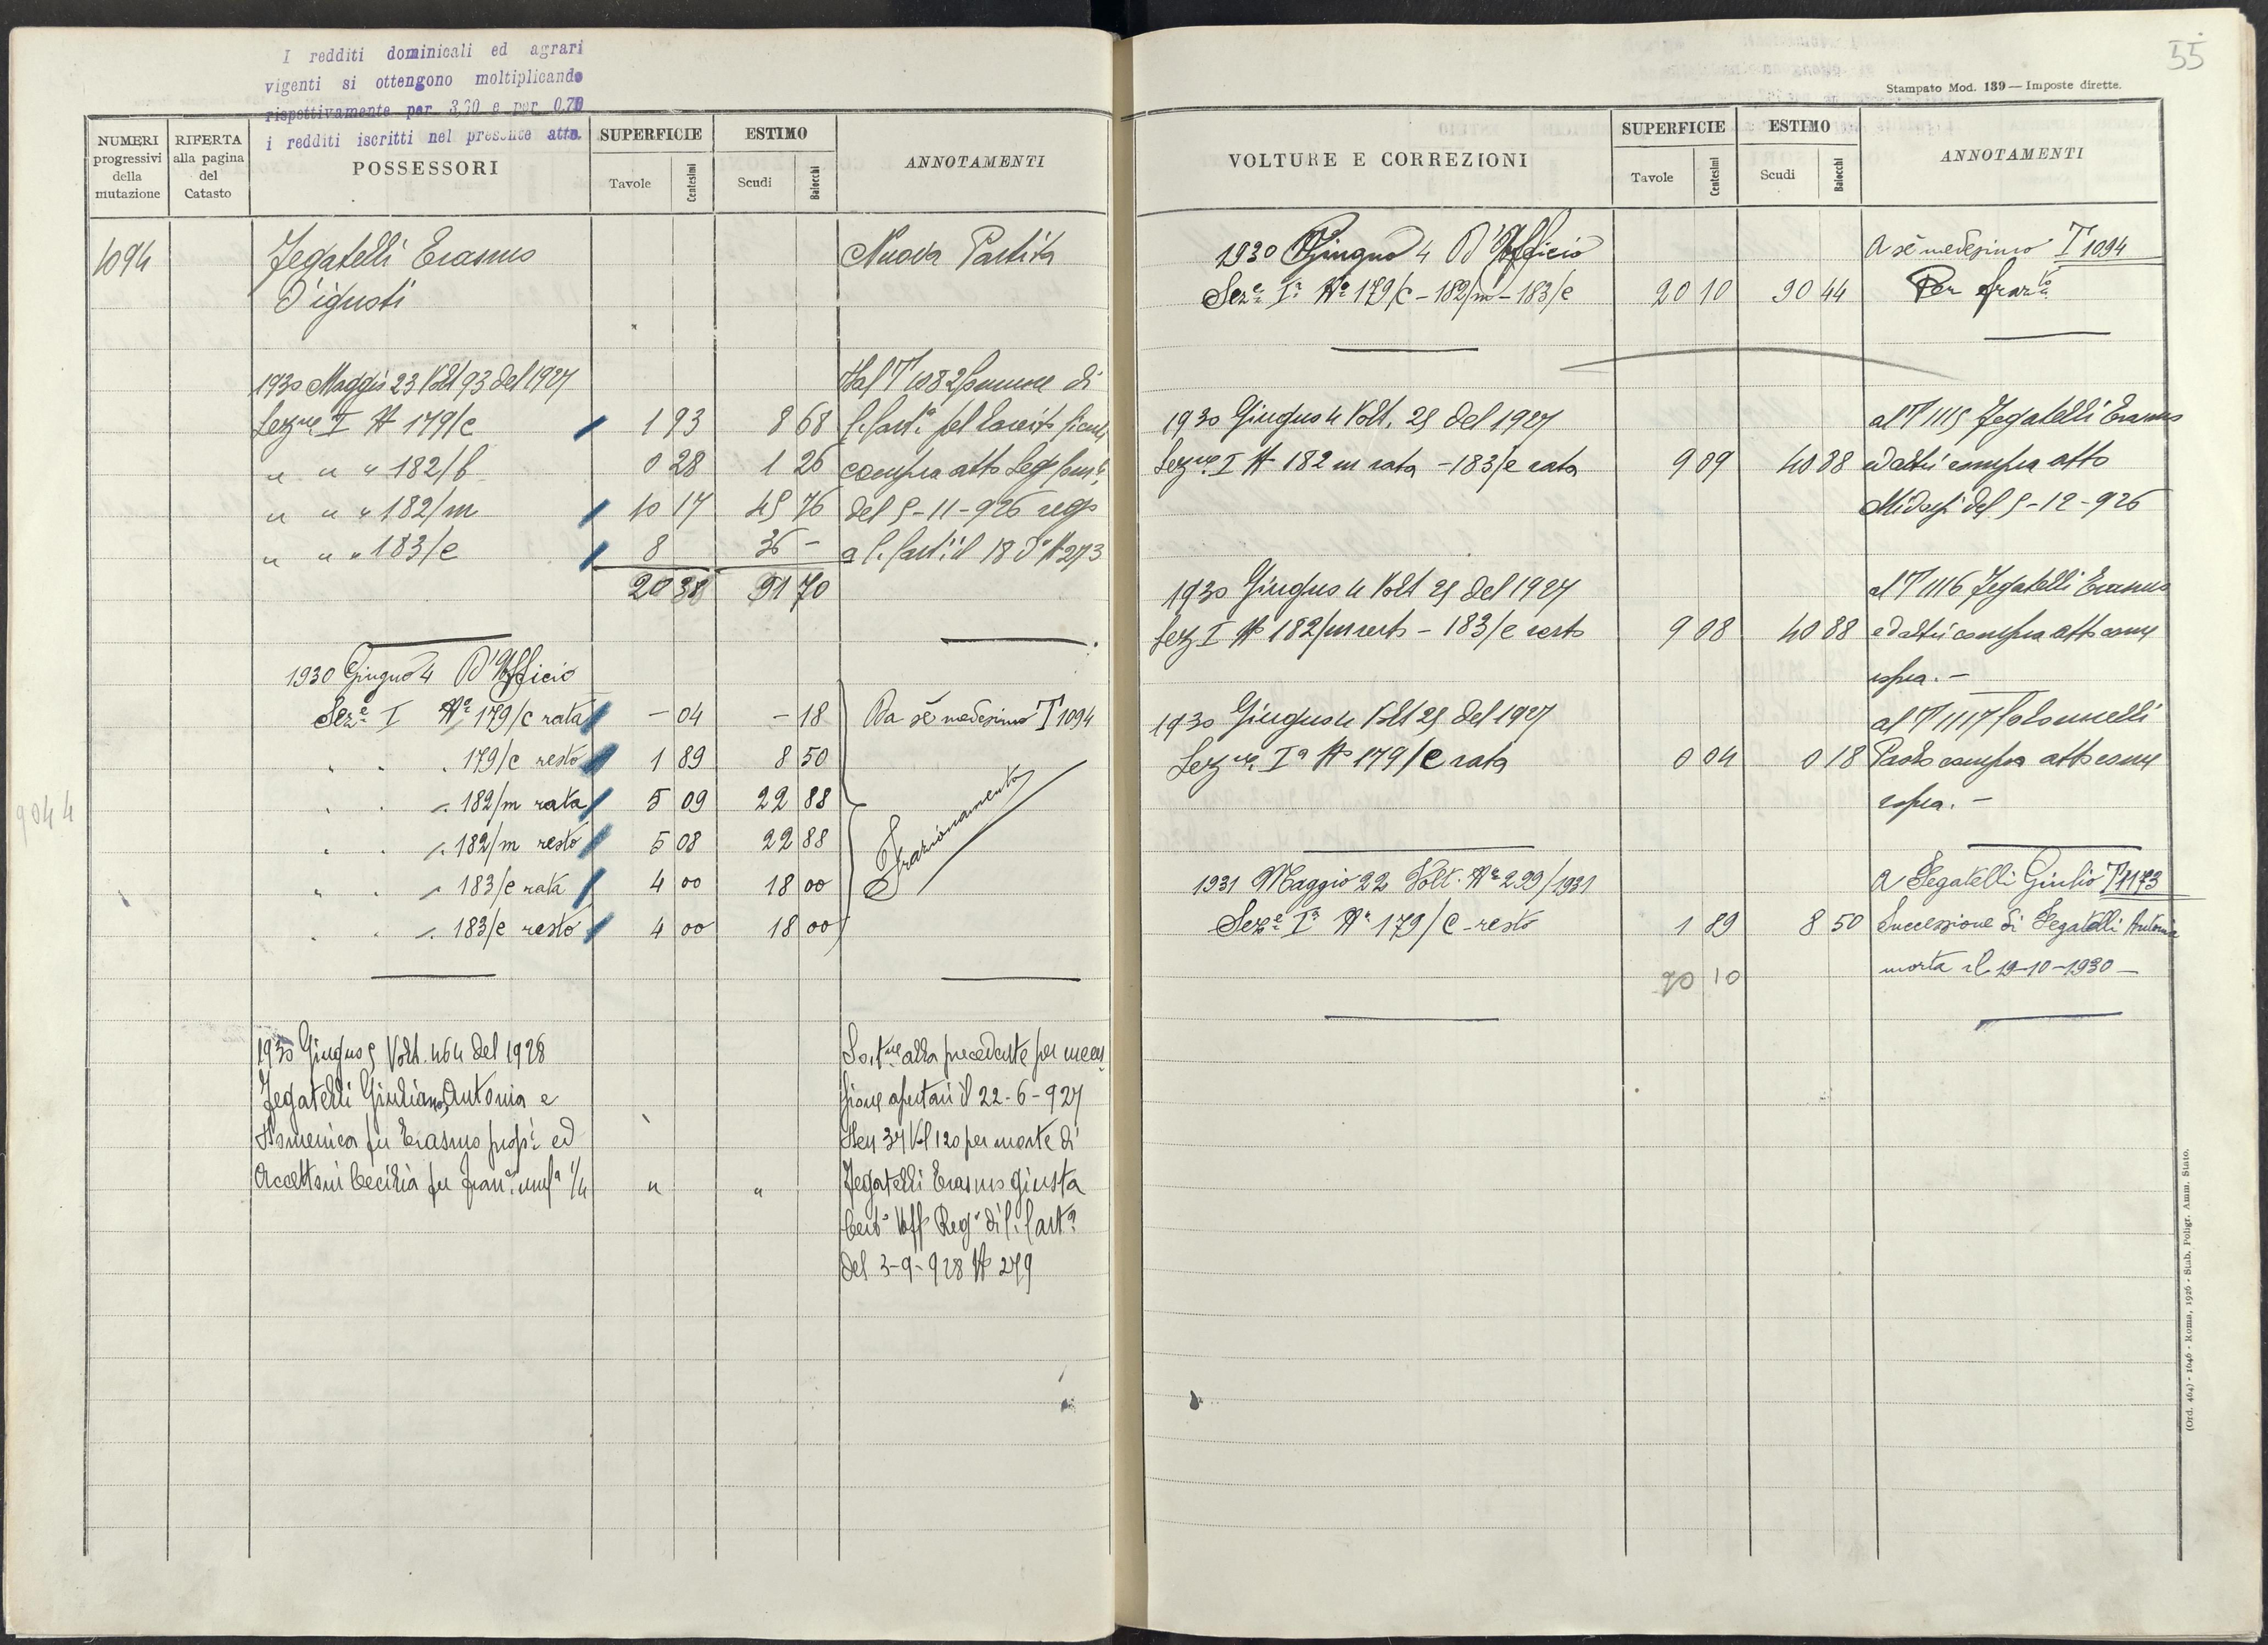 I redditi dominicali ed agrari
vigenti si ottengono moltiplicando
rispettivamente per 3,70 e per 0,70
i redditi iscritti nel presente atto.
NUMERI progressivi della mutazione
RIFERTA alla pagina del Catasto
POSSESSORI
SUPERFICIE
Tavole Centesimi
ESTIMO
Scudi Baiocchi
ANNOTAMENTI
1094 Segatelli Erasmo Nuova Partita
d'ignoti
1930 Maggio 23 Volt 93 del 1927 Dal T 1082 comune di
Sezne I No 179/c 1 93 8 68
" " " 182/b 0 28 1 26 compra atto
" " " 182/m 10 17 45 76 del 5-11-926 rego
" " " 183/e 8 36 - il 18 do No 273
20 38 91 70
1930 Giugno 4 D'Ufficio
Seze I No 179/c rata - 04 - 18 Da sè medesimo T 1094
" " " 179/c resto 1 89 8 50
" " " 182/m rata 5 09 22 88 Frazionamento
" " " 182/m resto 5 08 22 88
" " " 183/e rata 4 00 18 00
" " " 183/e resto 4 00 18 00
9044
1930 Giugno 5 Volt. 464 del 1928 alla precedente per
Segatelli Giuliano, Antonia e apertasi il 22-6-927
Domenica fu Erasmo propri ed Den 37 Vol 120 per morte di
Accettoni Cecilia fu 1/4 " " Segatelli Erasmo giusta
Certo Uff Rego di
del 3-9-928 No 279
55
Stampato Mod. 139 — Imposte dirette.
VOLTURE E CORREZIONI
SUPERFICIE
Tavole Centesimi
ESTIMO
Scudi Baiocchi
ANNOTAMENTI
1930 Giugno 4 D'Ufficio A sè medesimo T 1094
Seze Ia No 179/c - 182/m - 183/e 20 10 90 44 Per frazto
1930 Giugno 4 Volt. 25 del 1927 al T 1115 Segatelli Erasmo
Sezne I No 182 m rata - 183/e rata 9 09 40 88 ed altri compra atto
del 5-12-926
1930 Giugno 4 Volt 25 del 1927 al T 1116 Segatelli Erasmo
Sez I No 182/m resto - 183/e resto 9 08 40 88 ed altri compra atto come
sopra. -
1930 Giugno 4 Volt 25 del 1927 al T 1117 Colonnelli
Sezne Ia No 179/c rata 0 04 0 18 Paolo compra atto come
sopra. -
1931 Maggio 22 Volt. No 229/1931 A Segatelli Giulio T 1173
Seze Ia No 179/c - resto 1 89 8 50 Successione di Segatelli Antonia
20 10 morta il 19-10-1930 -
(Ord. 464) - 1646 - Roma, 1926 - Stab. Poligr. Amm. Stato.